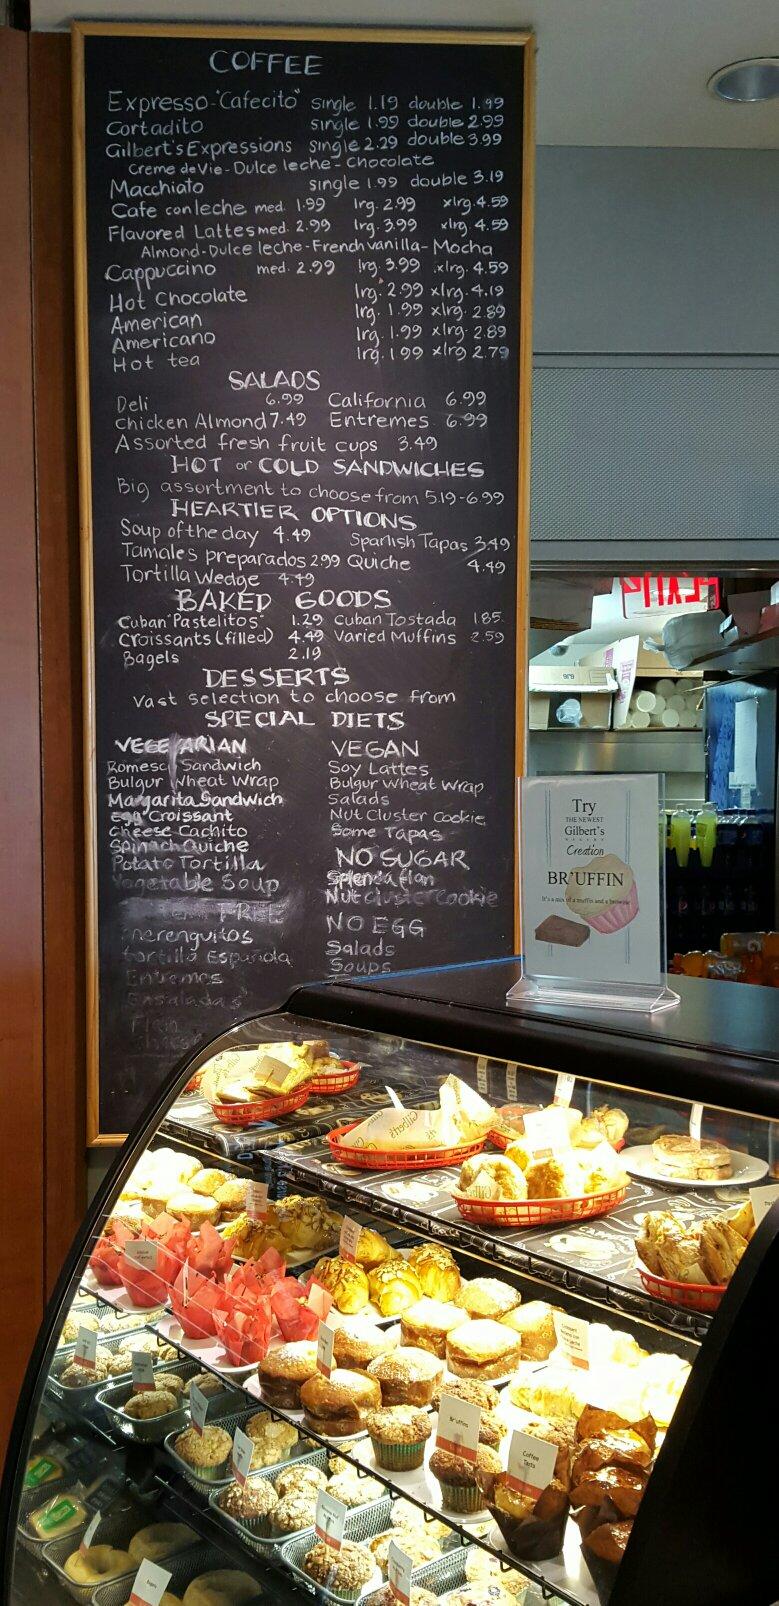 COFFEE
Expresso-"Cafecito" single 1.19 double 1.99
Cortadito single 1.99 double 2.99
Gilbert's Expressions single 2.29 double 3.99
Creme de Vie-Dulce leche-Chocolate
Macchiato single 1.99 double 3.19
Cafe con leche med. 1.99 lrg. 2.99 xlrg. 4.59
Flavored Lattes med. 2.99 lrg. 3.99 xlrg. 4.59
Almond-Dulce leche-French vanilla-Mocha
Cappuccino med. 2.99 lrg. 3.99 xlrg. 4.59
Hot Chocolate lrg. 2.99 xlrg. 4.19
American lrg. 1.99 xlrg. 2.89
Americano lrg. 1.99 xlrg. 2.89
Hot tea lrg. 1.99 xlrg 2.79
SALADS
Deli 6.99 California 6.99
Chicken Almond 7.49 Entremes 6.99
Assorted fresh fruit cups 3.49
HOT or COLD SANDWICHES
Big assortment to choose from 5.19-6.99
HEARTIER OPTIONS
Soup of the day 4.49 Spanish Tapas 3.49
Tamales preparados 2.99 Quiche 4.49
Tortilla Wedge 4.49
BAKED GOODS
Cuban "Pastelitos" 1.29 Cuban Tostada 1.85
Croissants (filled) 4.49 Varied Muffins 2.59
Bagels 2.19
DESSERTS
Vast selection to choose from
SPECIAL DIETS
VEGETARIAN
Romesco Sandwich
Bulgur Wheat Wrap
Margarita Sandwich
Egg Croissant
Cheese Cachito
Spinach Quiche
Potato Tortilla
Vegetable Soup
FREE
Merenguitos
Tortilla Española
Entremes
Ensaladas
Flan
VEGAN
Soy Lattes
Bulgur Wheat Wrap
Salads
Nut Cluster Cookie
Some Tapas
NO SUGAR
Splenda flan
Nut cluster Cookie
NO EGG
Salads
Soups
EXIT
Try
THE NEWEST
Gilbert's
BAKERY
Creation
BR'UFFIN
It's a mix of a muffin and a brownie
Gilbert's
Br'uffins
Coffee
Tarts